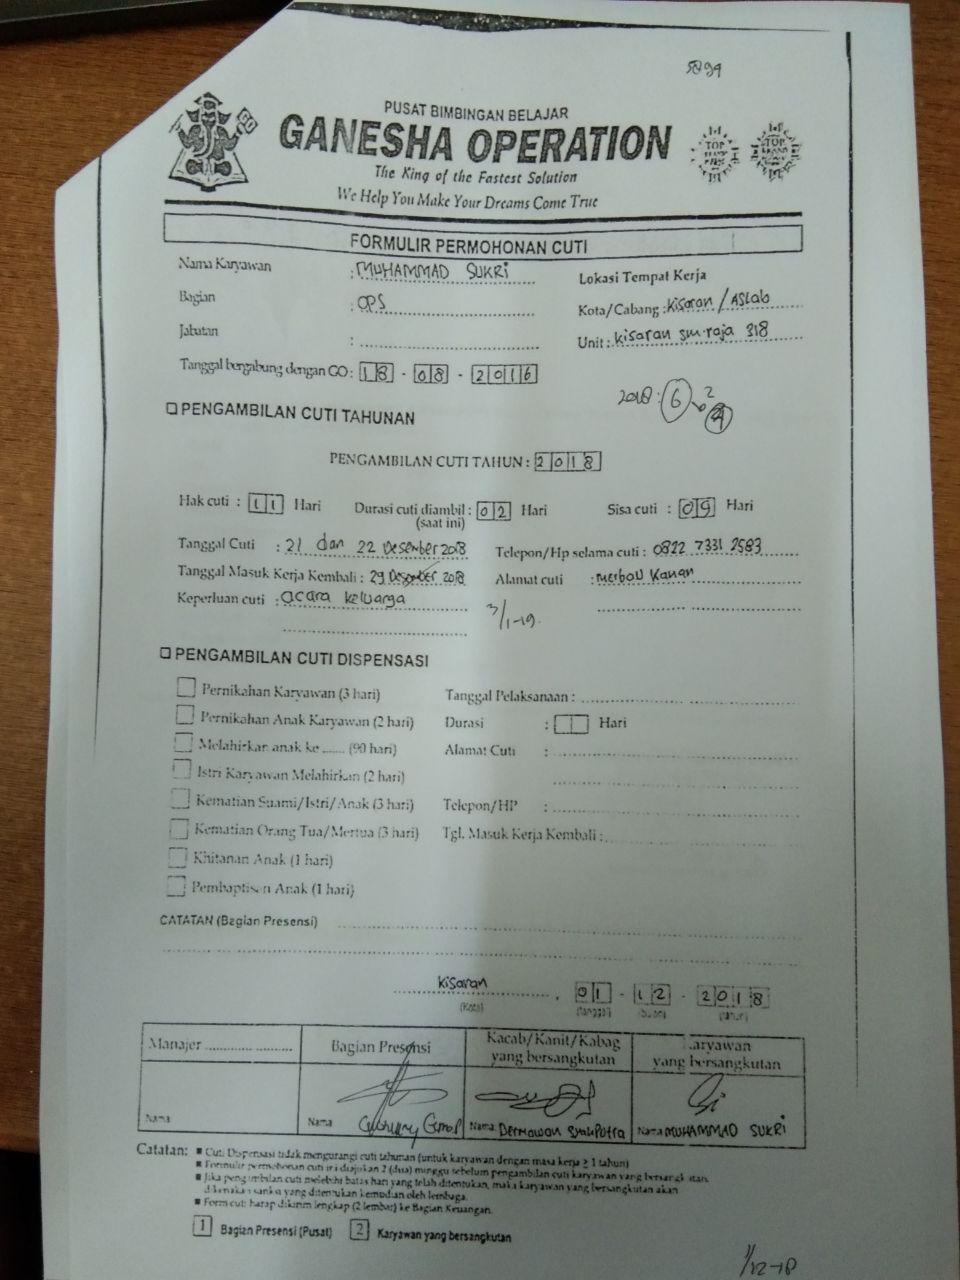 5894
PUSAT BIMBINGAN BELAJAR
GANESHA OPERATION
The King of the Fastest Solution
We Help You Make Your Dreams Come True
GO
TOP
TOP BRAND
FORMULIR PERMOHONAN CUTI
Nama Karyawan : MUHAMMAD SUKRi
Lokasi Tempat Kerja
Bagian : OPS
Kota/Cabang : Kisaran / ASLab
Jabatan :
Unit : kisaran sm-raja 318
Tanggal bergabung dengan GO : 18 - 08 - 2016
2018 : 6
PENGAMBILAN CUTI TAHUNAN
PENGAMBILAN CUTI TAHUN : 2018
Hak cuti : 11 Hari Durasi cuti diambil : 02 Hari Sisa cuti : 09 Hari
(saat ini)
Tanggal Cuti : 21 dan 22 Desember 2018 Telepon/Hp selama cuti : 0822 7331 2583
Tanggal Masuk Kerja Kembali : 29 Desember 2018 Alamat cuti : merbau Kanan
Keperluan cuti : acara keluarga
3/1-19.
PENGAMBILAN CUTI DISPENSASI
Pernikahan Karyawan (3 hari) Tanggal Pelaksanaan :
Pernikahan Anak Karyawan (2 hari) Durasi : Hari
Melahirkan anak ke ...... (90 hari) Alamat Cuti :
Istri Karyawan Melahirkan (2 hari)
Kematian Suami/Istri/Anak (3 hari) Telepon/HP :
Kematian Orang Tua/Mertua (3 hari) Tgl. Masuk Kerja Kembali :
Khitanan Anak (1 hari)
Pembaptisan Anak (1 hari)
CATATAN (Bagian Presensi)
Kisaran, 01 - 12 - 2018
(Kota) (Tanggal) (Bulan) (Tahun)
Manajer .................... Bagian Presensi Kacab/Kanit/Kabag yang bersangkutan Karyawan yang bersangkutan
Nama Nama Nama Dermawan Syahputra Nama MUHAMMAD SUKRi
Catatan: ▪ Cuti Dispensasi tidak mengurangi cuti tahunan (untuk karyawan dengan masa kerja ≥ 1 tahun)
▪ Formulir permohonan cuti ini diajukan 2 (dua) minggu sebelum pengambilan cuti karyawan yang bersangkutan.
▪ Jika pengambilan cuti melebihi batas hari yang telah ditentukan, maka karyawan yang bersangkutan akan
dikenakan sanksi yang ditentukan kemudian oleh lembaga.
▪ Form cuti harap dikirim lengkap (2 lembar) ke Bagian Keuangan.
1 Bagian Presensi (Pusat) 2 Karyawan yang bersangkutan
1/12-18